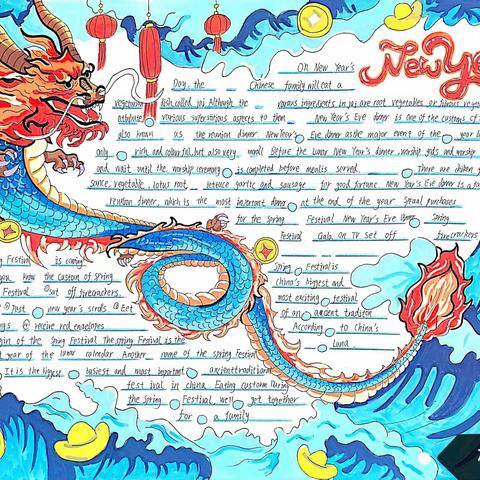 New Ye
On New Year's
Day, the Chinese family will eat a
vegetarian dish called jai. Although the various ingredients in jai are root vegetables or fibrous vege
attribute various superstitious aspects to them New Year's Eve dinner is one of the customs of
also known as the reunion dinner. New Year's Eve dinner as the major event of the year
only rich and colourful, but also very Before the Lunar New Year's dinner, worship gods and worship
and wait until the worship ceremony is completed before meal is served. There are chicken
sauce, vegetable, lotus root, lettuce garlic and sausage for good fortune. New Year's Eve dinner is a
reunion dinner, which is the most important dinner at the end of the year
for the Spring Festival New Year's Eve Dinner Spring
Festival Gala on TV set off firecrackers
g Festival is coming
you know the custom of Spring
Festival set off firecrackers.
new year's scrolls
receive red envelopes
gin of the Spring Festival The spring Festival is the
t year of the lunar calendar Another name of the spring festival
It is the biggest busiest and most important ancient traditional
festival in china. Eating custom During
the Spring Festival, we'll get together
for a family
Spring Festival is
china's biggest and
most exciting festival
of an ancient tradition
According to China's
Luna